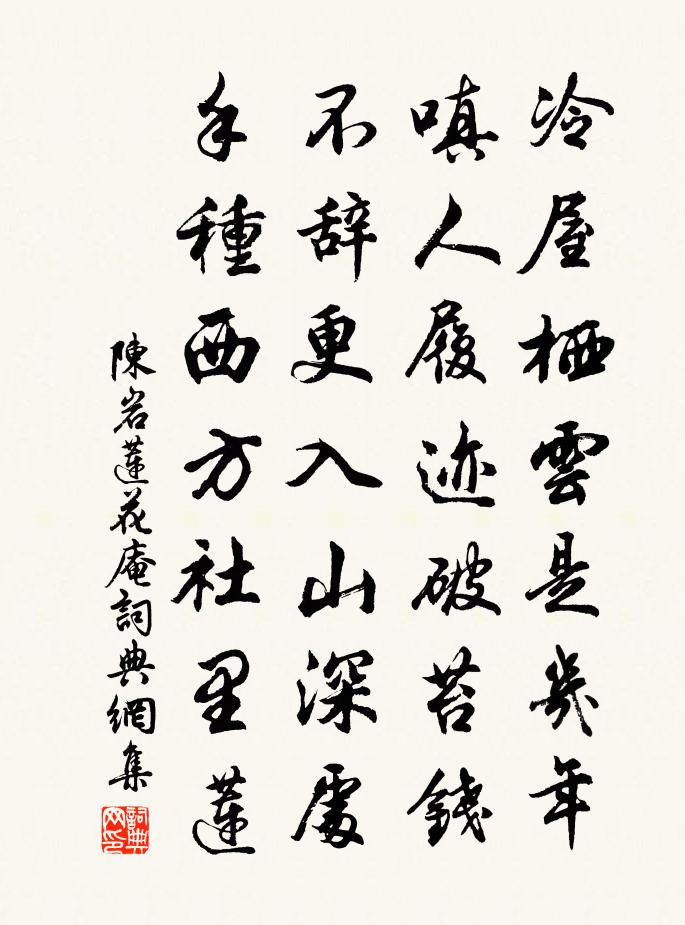 冷屋栖雲是幾年
嗔人履迹破苔錢
不辞更入山深處
手種西方社里蓮
陳岩蓮花庵詞典網集
詞典网印